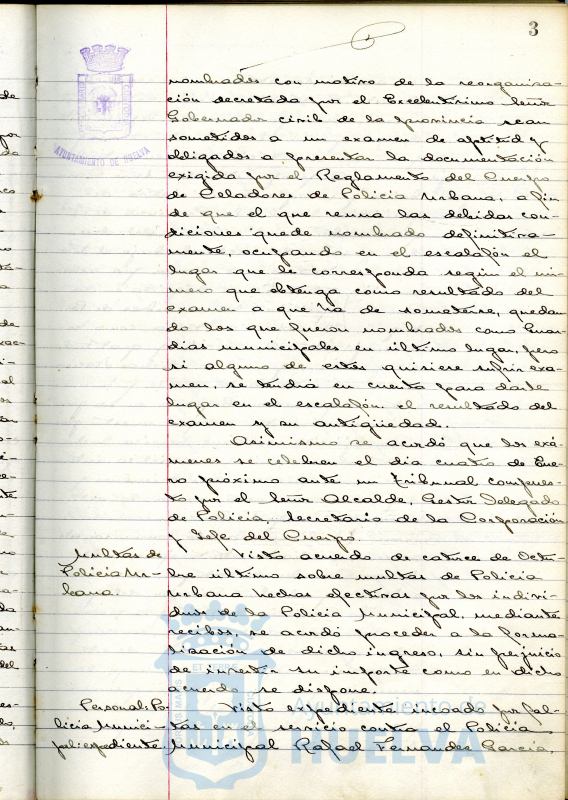 3
AYUNTAMIENTO DE HUELVA
nombrados con motivo de la reorganiza-
ción decretada por el Excelentísimo Señor
Gobernador civil de la provincia sean
sometidos a un examen de aptitud y
obligados a presentar la documentación
exigida por el Reglamento del Cuerpo
de Celadores de Policía Urbana, a fin
de que el que reuna las debidas con-
diciones quede nombrado definitiva-
mente, ocupando en el escalafón el
lugar que le corresponda según el nú-
mero que obtenga como resultado del
examen a que ha de someterse, quedan-
do los que fueron nombrados como Guar-
dias municipales en último lugar, pero
si alguno de estos quisiere sufrir exa-
men, se tendrá en cuenta para darle
lugar en el escalafón el resultado del
examen y su antigüedad.
Asimismo se acordó que los exá-
menes se celebren el dia cuatro de Ene-
ro próximo ante un tribunal compues-
to por el Señor Alcalde, Gestor Delegado
de Policía, Secretario de la Corporación
y Jefe del Cuerpo.
Multas de
Policía Ur-
bana.
Visto acuerdo de catorce de Octu-
bre último sobre multas de Policía
Urbana hechas efectivas por los indivi-
duos de la Policía Municipal, mediante
recibos, se acordó proceder a la forma-
lización de dicho ingreso, sin prejuicio
de su importe como en dicho
acuerdo se dispone.
Personal: Po-
licía Munici-
pal: expediente.
Visto expediente incoado por fal-
tas en el servicio contra el Policía
Municipal Rafael Fernandez García,
Ayuntamiento de
HUELVA